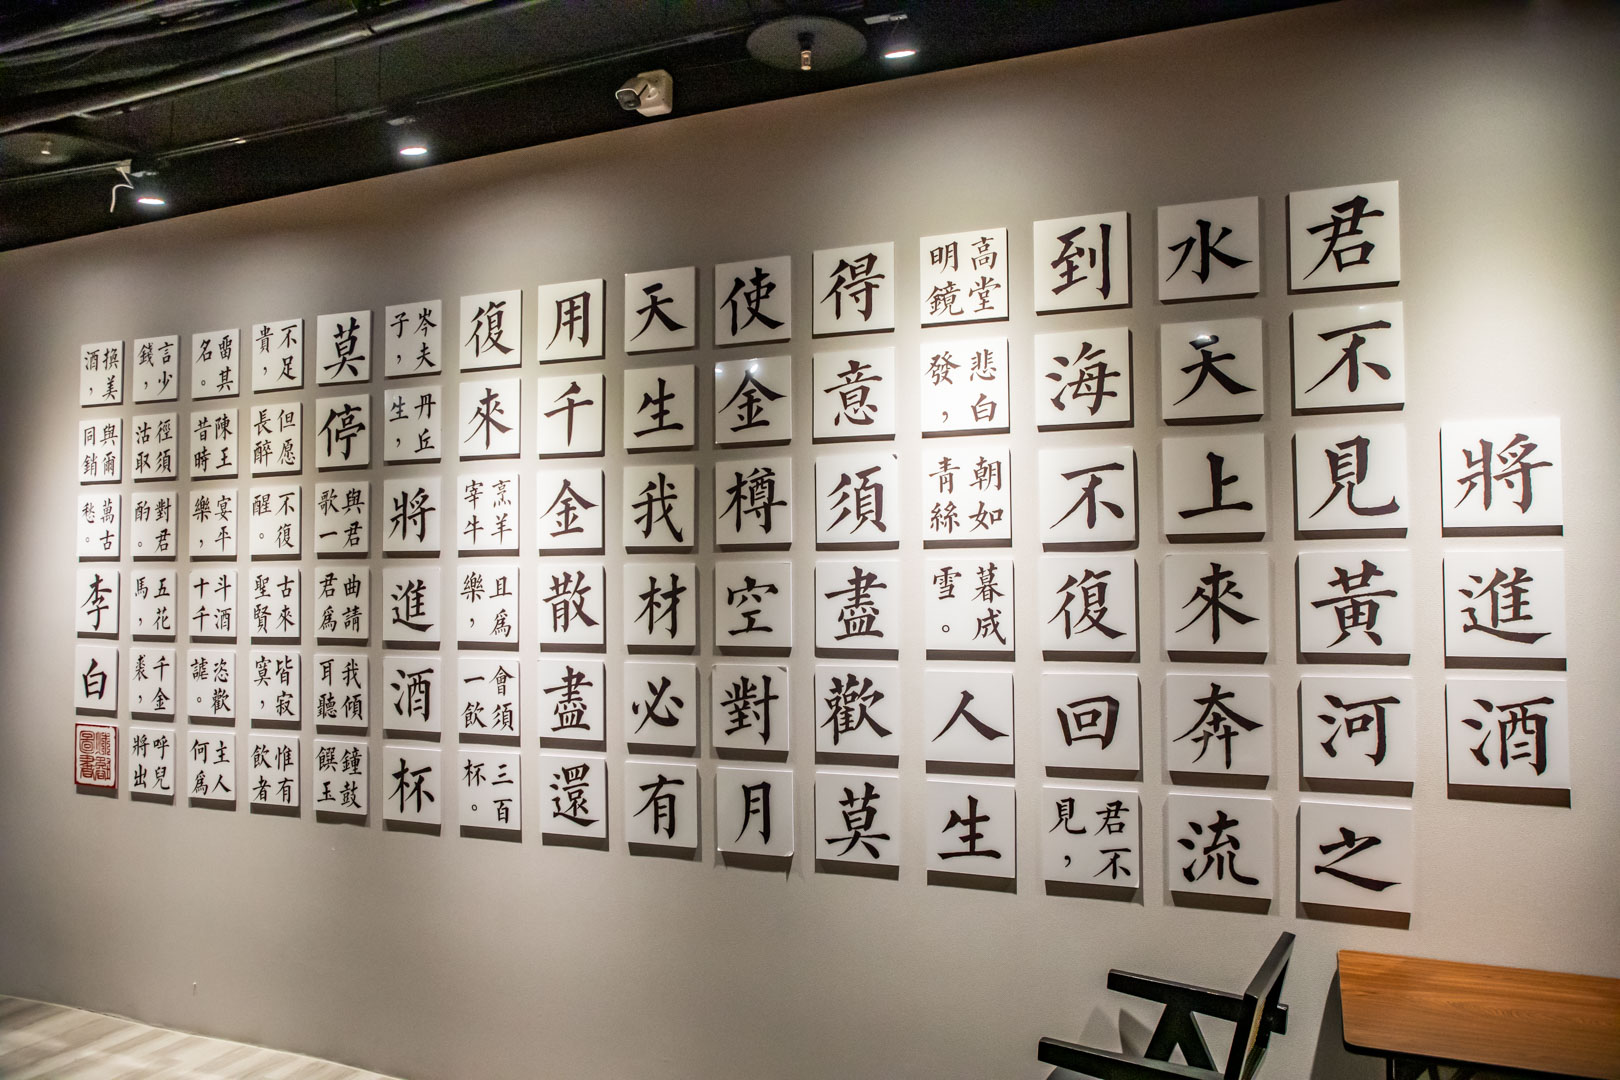 將進酒
君不見黃河之
水天上來奔流
到海不復回君不見，
高堂明鏡悲白發，朝如青絲暮成雪。人生
得意須盡歡莫
使金樽空對月
天生我材必有
用千金散盡還
復來烹羊宰牛且爲樂，會須一飲三百杯。
岑夫子，丹丘生，將進酒杯
莫停與君歌一曲請君爲我傾耳聽鐘鼓饌玉
不足貴，但愿長醉不復醒。古來聖賢皆寂寞，惟有飲者
畱其名。陳王昔時宴平樂，斗酒十千恣歡謔。主人何爲
言少錢，徑須沽取對君酌。五花馬，千金裘，呼兒將出
換美酒，與爾同銷萬古愁。李白